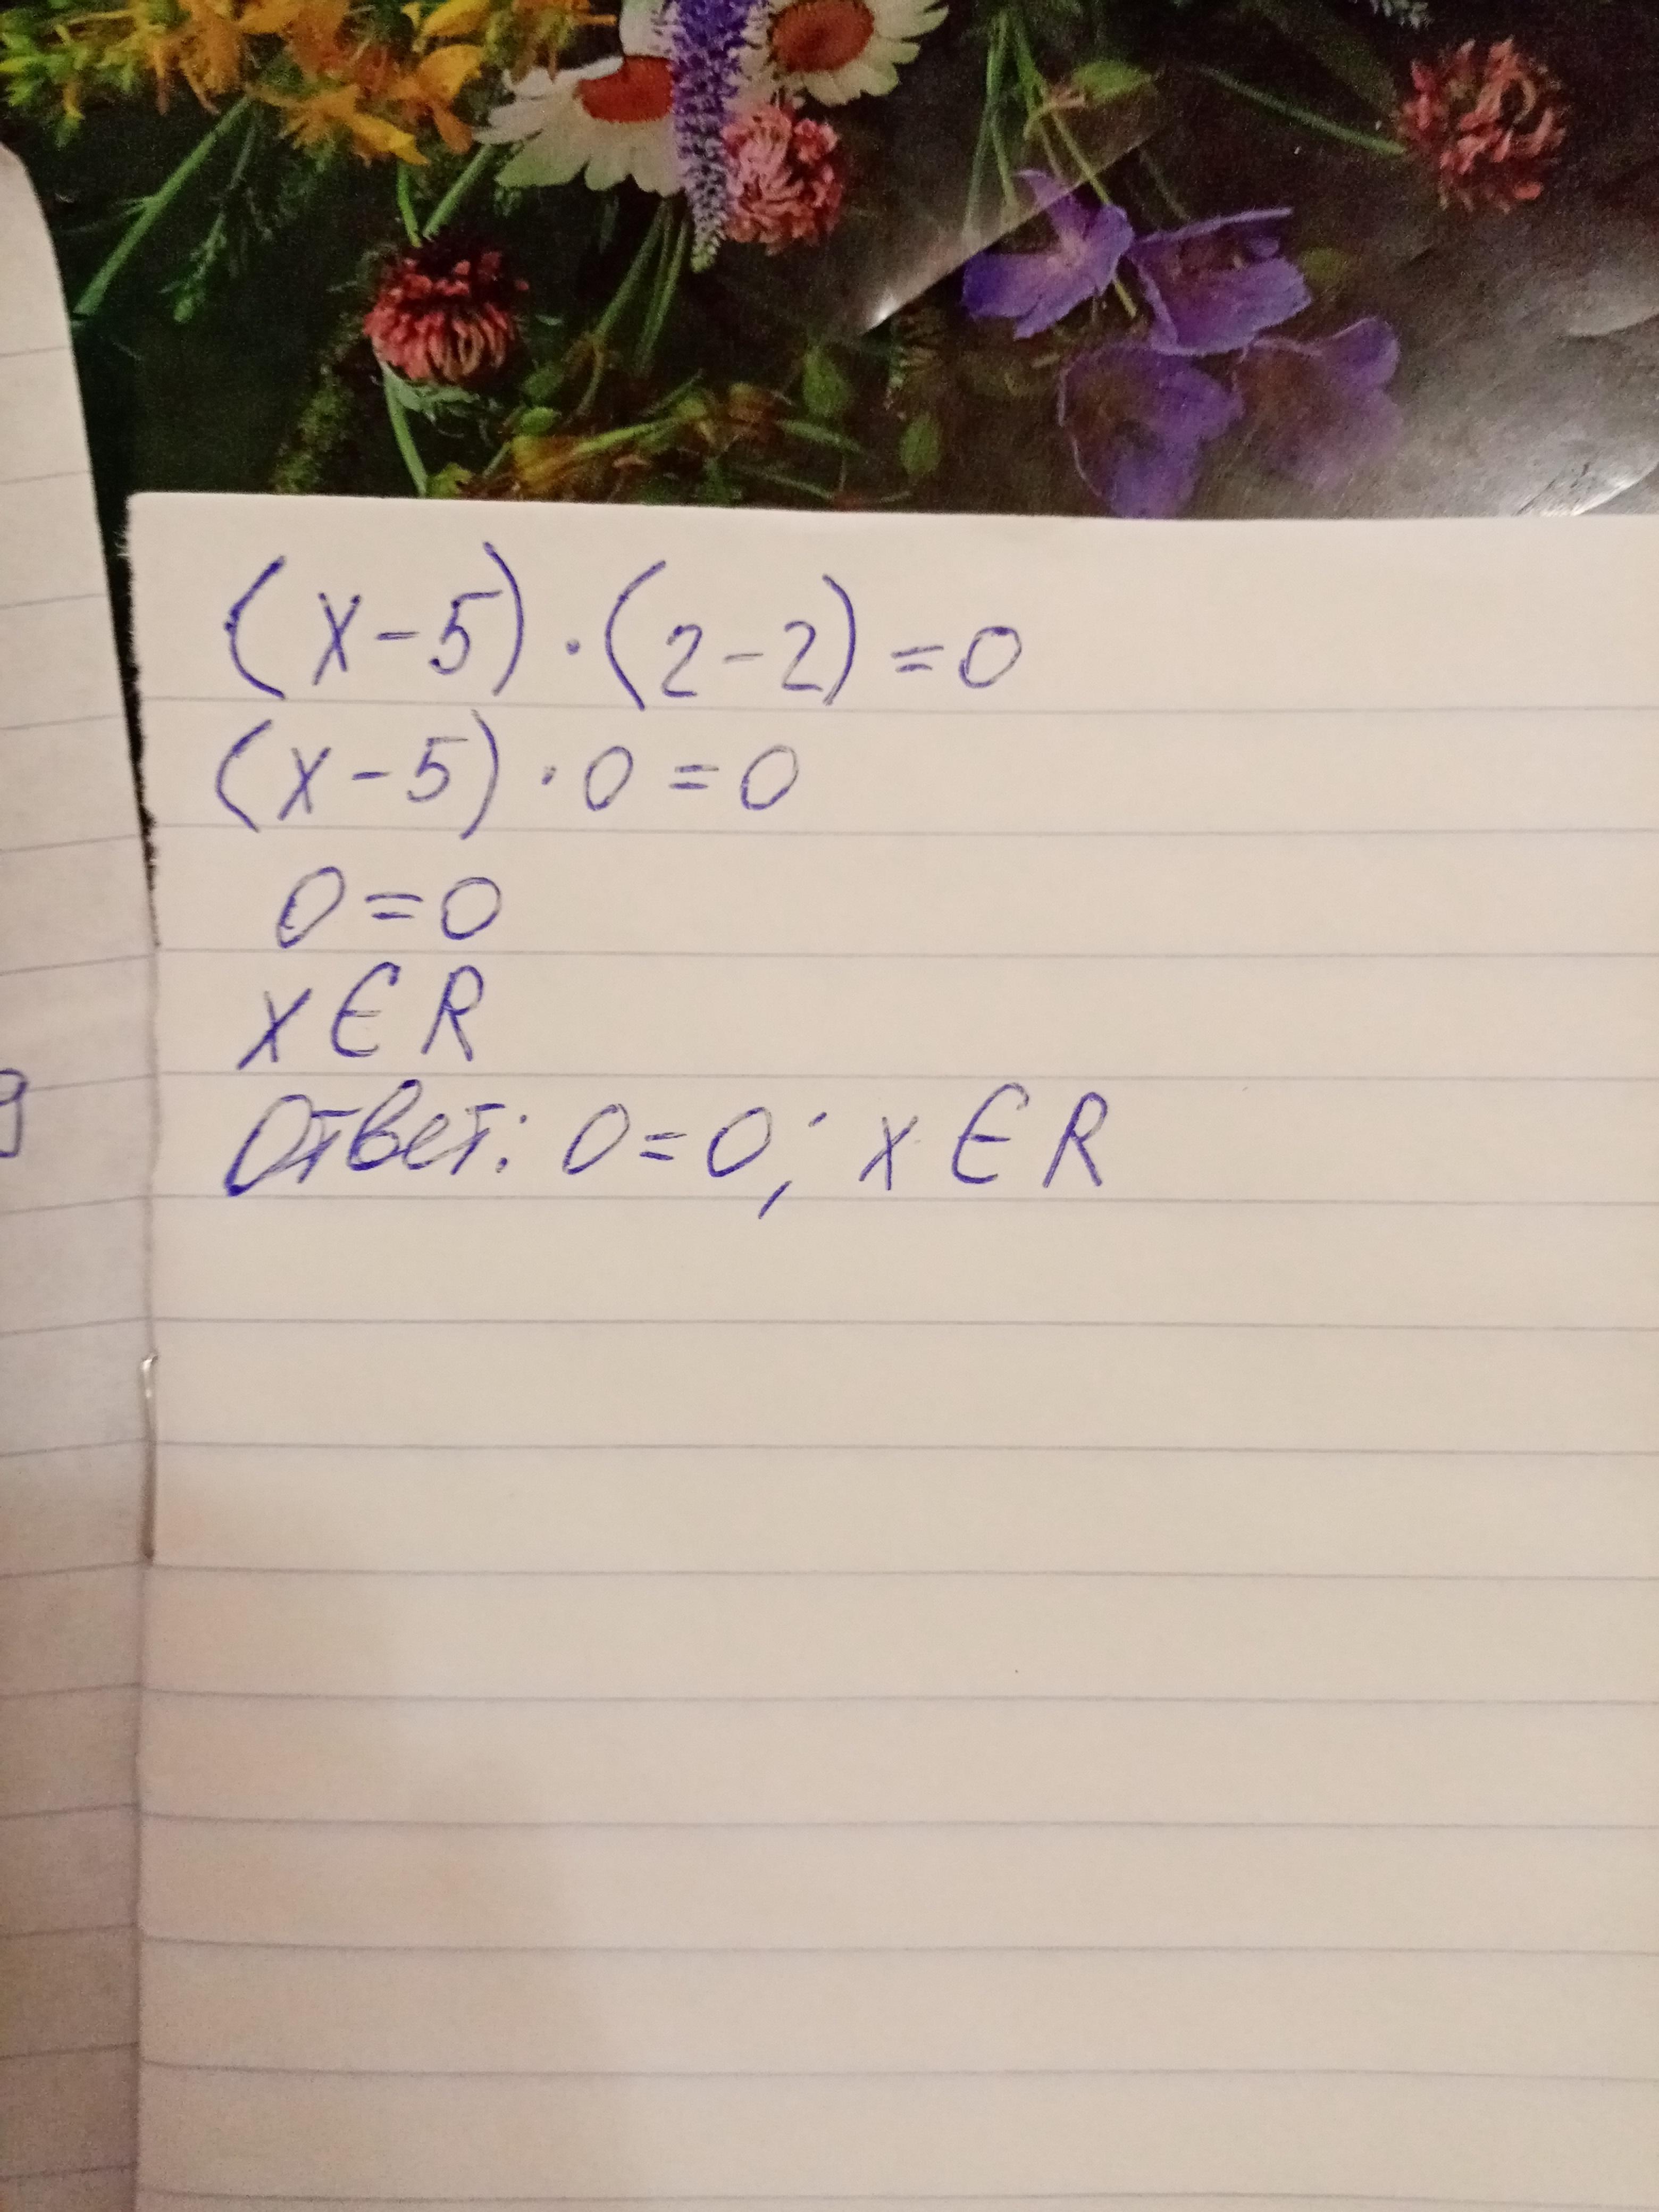 (x-5)·(2-2)=0
(x-5)·0=0
0=0
x∈R
Ответ: 0=0; x∈R